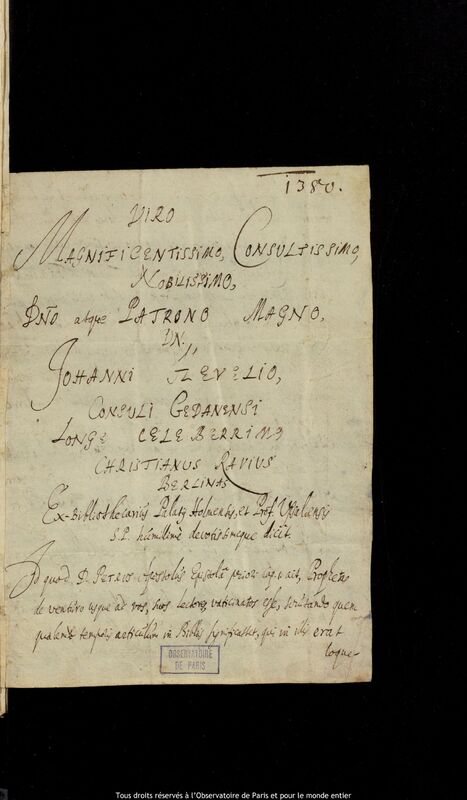 1380.
VIRO
MAGNIFICENTISSIMO, CONSULTISSIMO,
NOBILISSIMO,
DÑO atque PATRONO MAGNO,
DN,
JOHANNI HEVELIO,
CONSULI GEDANENSI
LONGE CELEBERRIMO
CHRISTIANUS RAVIUS
BERLINAS
Ex-Bibliothecarius Palatij Holmensis, et Prof. Upsaliensis
S.P. humilime devotissimeque dicit.
Id quod D. PETRUS Apostolus Epistolâ priori ait, Prophetas
de venturo usque ad vos, suos lectores, vaticinatos esse, scrutando quem
qualemve temporis articulum in Bibliis significasset, qui in illis erat
loque-
OBSERVATOIRE
DE PARIS
Tous droits réservés à l'Observatoire de Paris et pour le monde entier